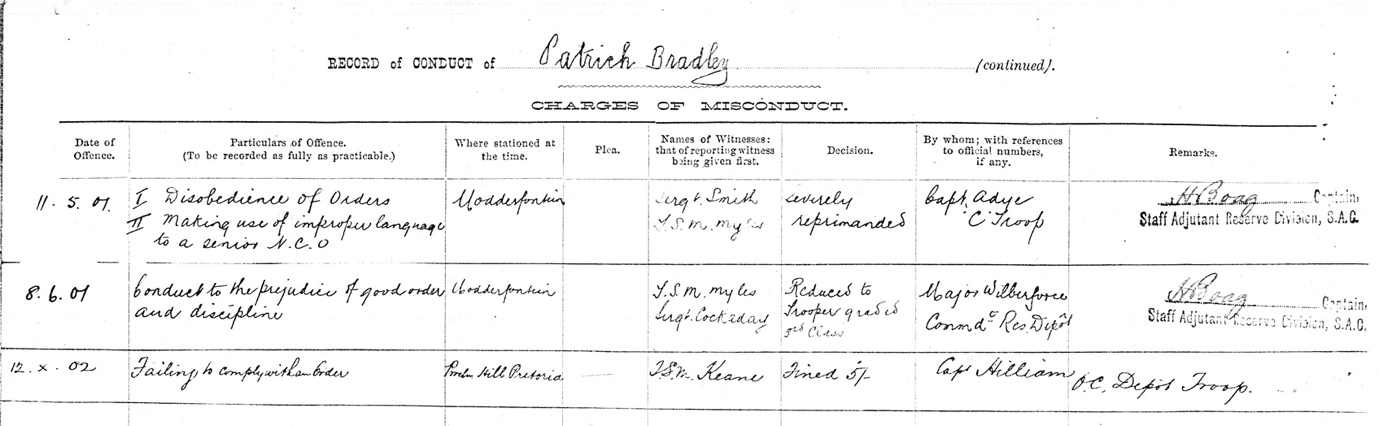 RECORD of CONDUCT of Patrick Bradley (continued).
CHARGES OF MISCONDUCT.
Date of Offence. Particulars of Offence. (To be recorded as fully as practicable.) Where stationed at the time. Plea. Names of Witnesses: that of reporting witness being given first. Decision. By whom; with references to official numbers, if any. Remarks.
11. 5. 01. I Disobedience of Orders Modderfontein Sergt. Smith severely Capt Adye H Boag Captain,
II Making use of improper language T.S.M. Myles reprimanded "C" Troop Staff Adjutant Reserve Division, S.A.C.
to a senior N.C.O
8. 6. 01 Conduct to the prejudice of good order Modderfontein T.S.M. Myles Reduced to Major Wilberforce H Boag Captain,
and discipline Sergt Cockaday Trooper graded Commdg Res. Depôt Staff Adjutant Reserve Division, S.A.C.
3rd Class
12. X. 02 Failing to comply with an order Hill Pretoria T.S.M. Keane Fined 5/- Capt Hilliam O.C. Depot Troop.